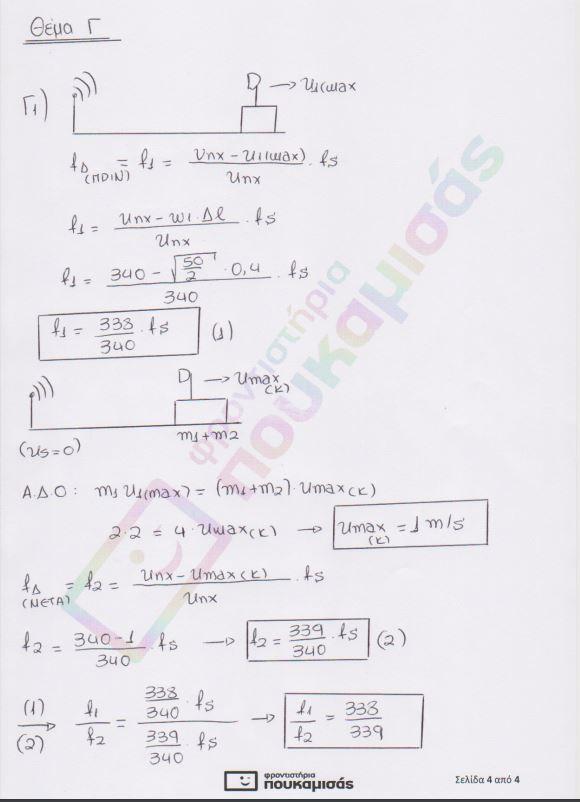 Θέμα Γ
Γ1) D → υ1(max
fΔ (ΠΡΙΝ) = f1 = υηχ - υ1(max) / υηχ · fs
f1 = υηχ - ω1 · Δl / υηχ · fs
f1 = 340 - √50/2 · 0,4 / 340 · fs
f1 = 338/340 · fs (1)
D → υmax (κ)
(υs=0) m1+m2
Α.Δ.Ο: m1 υ1(max) = (m1+m2) · υmax(κ)
2·2 = 4 · υmax(κ) → υmax (κ) = 1 m/s
fΔ (ΜΕΤΑ) = f2 = υηχ - υmax(κ) / υηχ · fs
f2 = 340-1 / 340 · fs → f2 = 339/340 · fs (2)
(1)/(2) → f1/f2 = 338/340 · fs / 339/340 · fs → f1/f2 = 338/339
φροντιστήρια
πουκαμισάς
φροντιστήρια
πουκαμισάς
Σελίδα 4 από 4